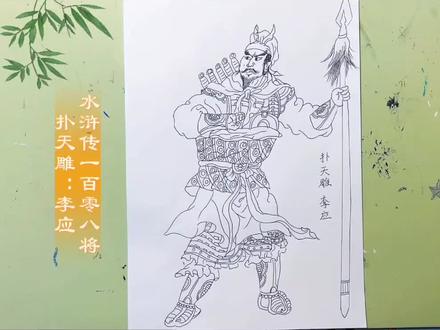 水浒传一百零八将
扑天雕：李应
扑天雕 李应